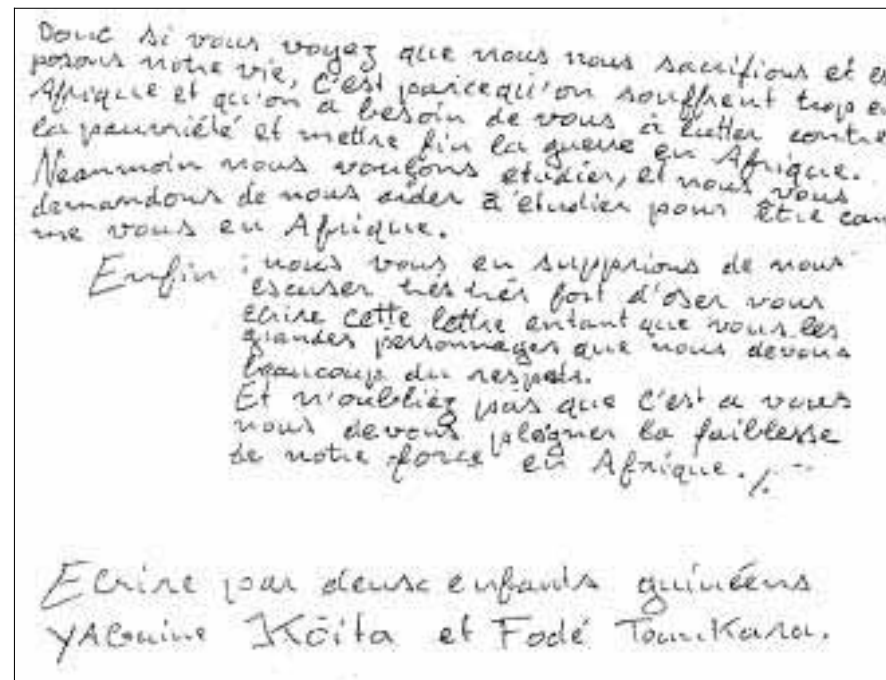 Donc si vous voyez que nous nous sacrifions et ex
posons notre vie, c'est parcequ'on souffrent trop en
Afrique et qu'on a besoin de vous à lutter contre
la pauvriété et mettre fin la guerre en Afrique.
Neanmoin nous voulons etudier, et nous vous
demandons de nous aider à etudier pour être com
me vous en Afrique.
Enfin : nous vous en supprions de nous
escuser très très fort d'oser vous
ecrire cette lettre entant que vous les
grandes personnages que nous devons
beaucoup du respets.
Et n'oubliez pas que c'est a vous
nous devons plegner la faiblesse
de notre force en Afrique ./.
Ecrire par deux enfants guinéens
YAGuine Koïta et Fodé TounKara.